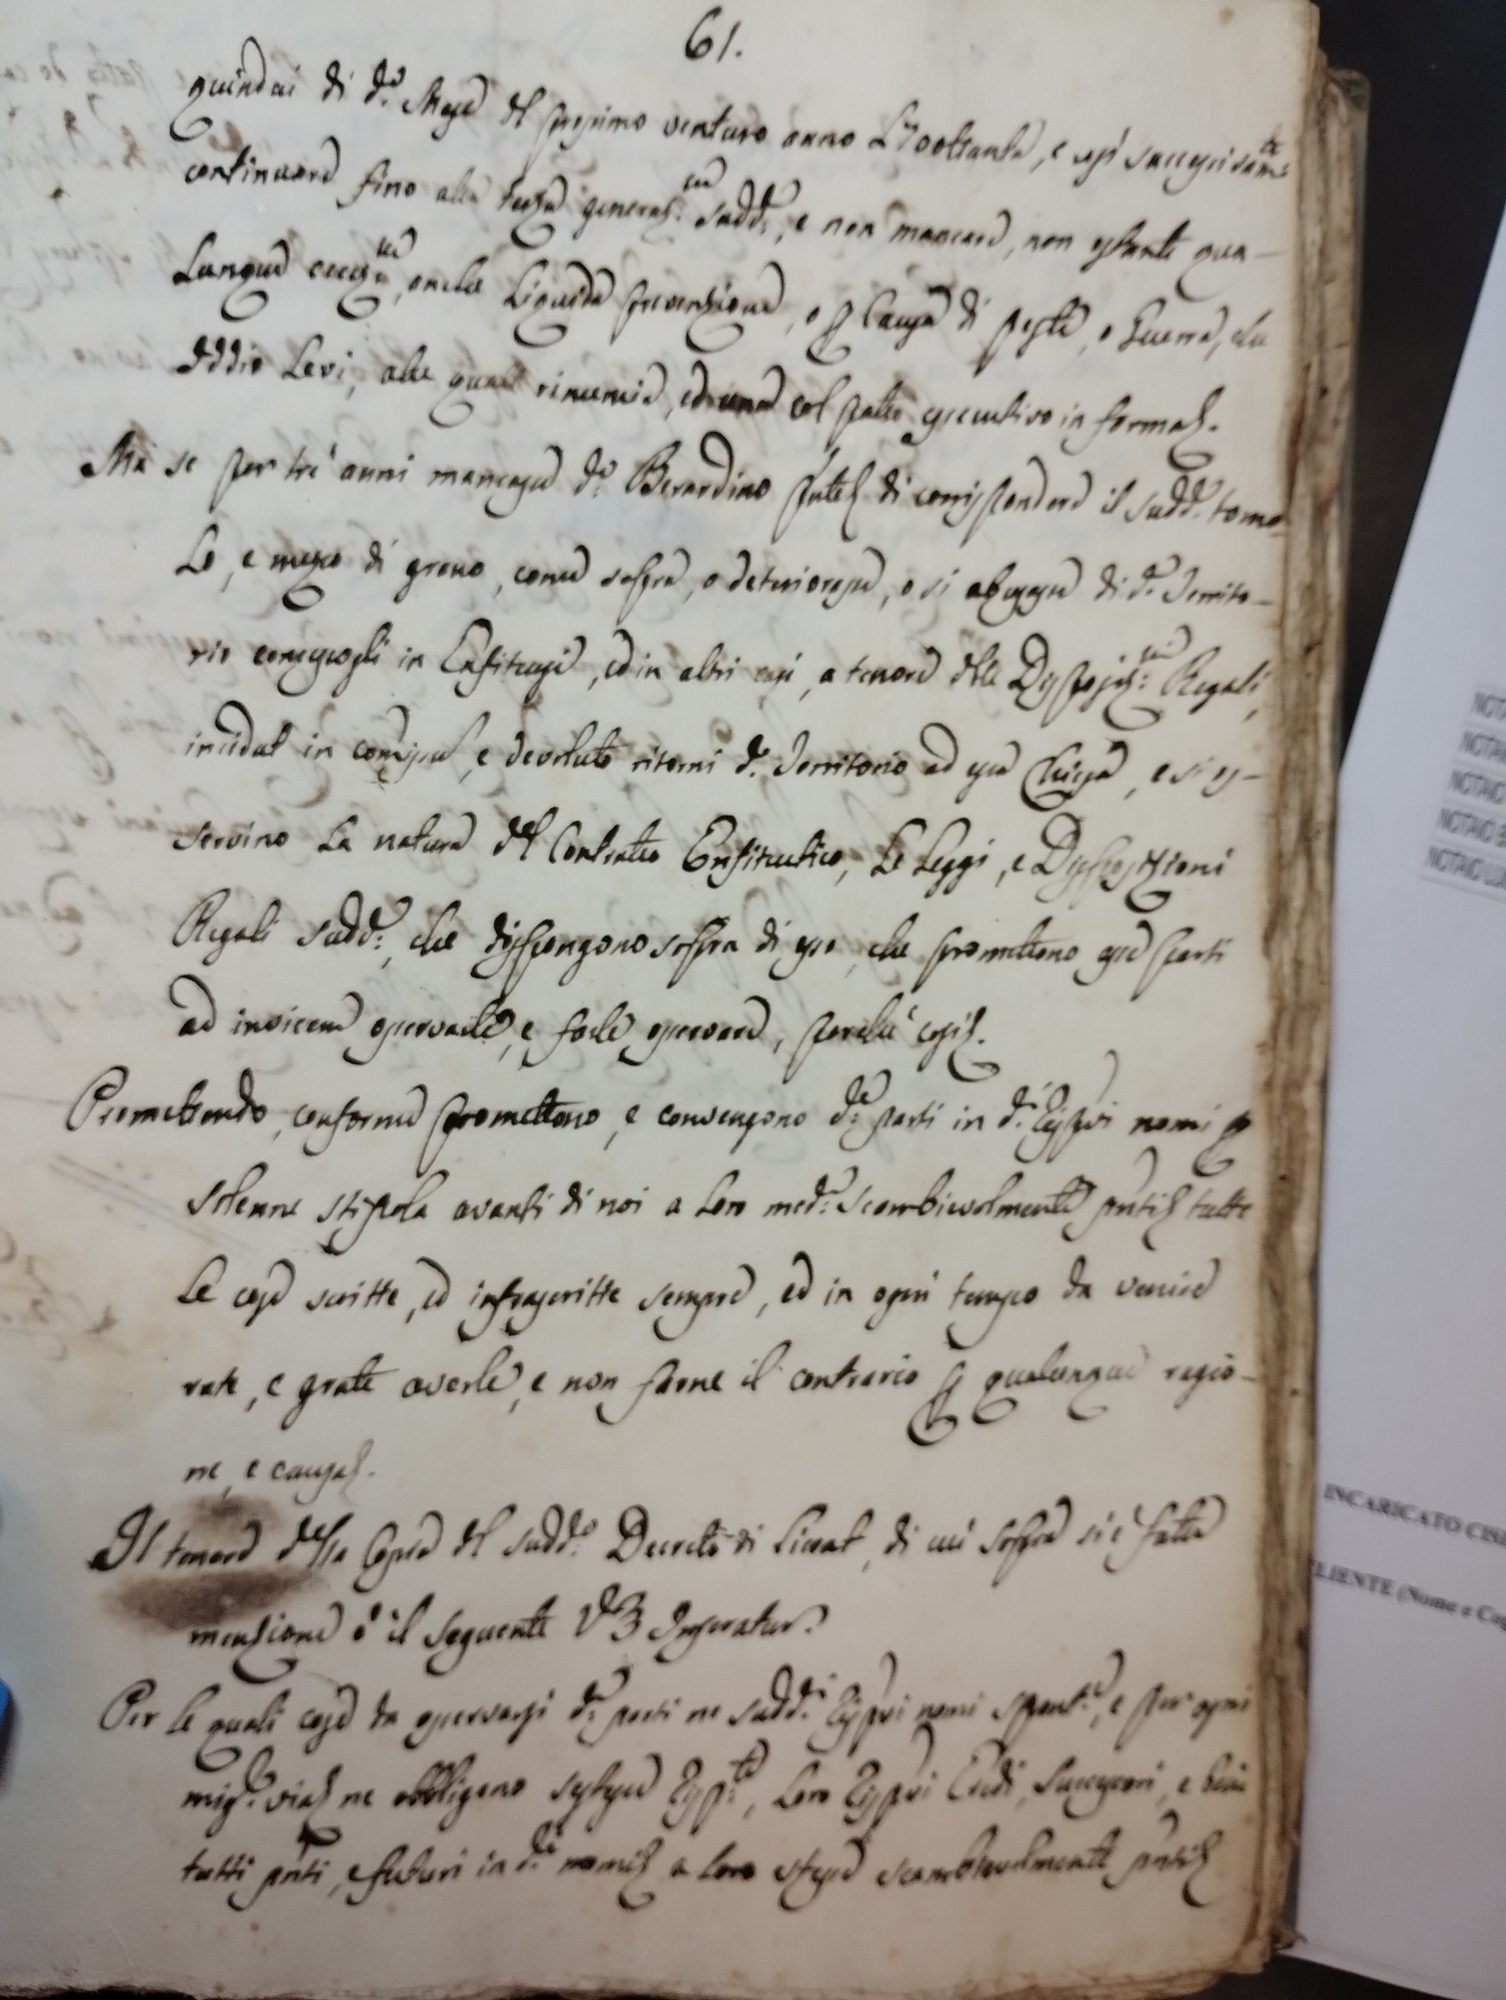 61.
quindici di d.o Mese del prossimo venturo anno 1700ottanta, e così successivam.te
continuare fino alla terza generaz.ne sudd.a, e non mancare, non ostante qua-
lunque eccez.ne, anche liquida prevenzione, o p causa di peste, o Guerra, che
Iddio levi, alle quali rinuncia, ed anco col patto esecutivo in forma.
Ma se per trè anni mancasse d.o Berardino di corrispondere il sudd.o tomo-
lo, e mezzo di grano, come sopra, o deteriorasse, o si abusasse di d.o Territo-
rio concessogli in Enfiteusi, ed in altri casi, a tenore delle Disposiz.ni Regali,
incidat in commissum, e devoluto ritorni d.o Territorio ad essa Chiesa, e si os-
servino la natura del Contratto Enfiteutico, le Leggi, e Disposizioni
Regali sudd.e, che dispongono sopra di esso, che promettono esse parti
ad invicem osservarle, e farle osservare, perchè così.
Promettendo, conforme promettono, e convengono d.e parti in d.i rispvi nomi p
solenne stipola avanti di noi a loro med.e scambievolmente pnti tutte
le cose scritte, ed infrascritte sempre, ed in ogni tempo da venire
rate, e grate averle, e non farne il contrario p qualunque ragio-
ne, e causa.
Il tenore della Copia del sudd.o Decreto di Liceat, di cui sopra si è fatta
menzione è il seguente Vz Inseratur.
Per le quali cose da osservarsi d.e parti ne sudd.i rispvi nomi spont.e, e per ogni
mig.r via ne obbligano sestesse risp.te, loro rispvi Eredi, Successori, e beni
tutti pnti, e futuri in d.i nomi a loro stesse scambievolmente pnti
INCARICATO
CLIENTE (Nome e